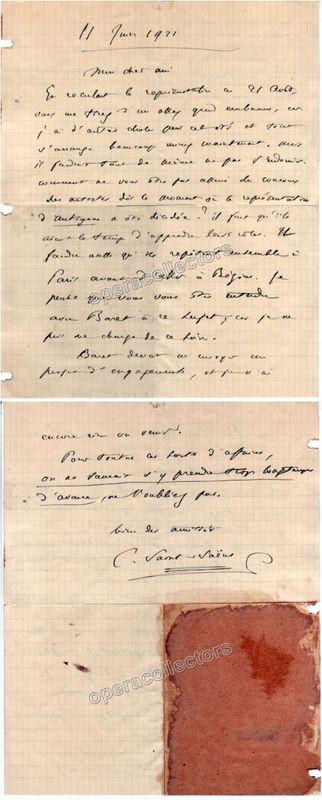 11 Juin 1921
Mon cher ami
En reculant la représentation au 21 Août,
vous me tirez d'un assez grand embarras, car
j'ai d'autres choses cet été et tout
s'arrange beaucoup mieux maintenant, mais
il faudra tout de même ne pas s'endormir.
comment ne vous êtes pas assuré du concours
des artistes dès le moment où la représentation
d'Antigone a été décidée? il faut qu'ils
aient le temps d'apprendre leurs rôles. Il
faudra aussi qu'ils répètent ensemble à
Paris avant d'aller à Béziers. Je
pense que vous vous êtes entendu
avec Baret à ce sujet, car je ne
puis me charger de ce soin.
Baret devait m'envoyer un
projet d'engagement, et je n'ai
operacollectors
encore rien vu venir.
Pour toutes ces sortes d'affaires,
on ne saurait s'y prendre trop longtemps
d'avance, ne l'oubliez pas.
bien des amitiés
C. Saint-Saëns
operacollectors